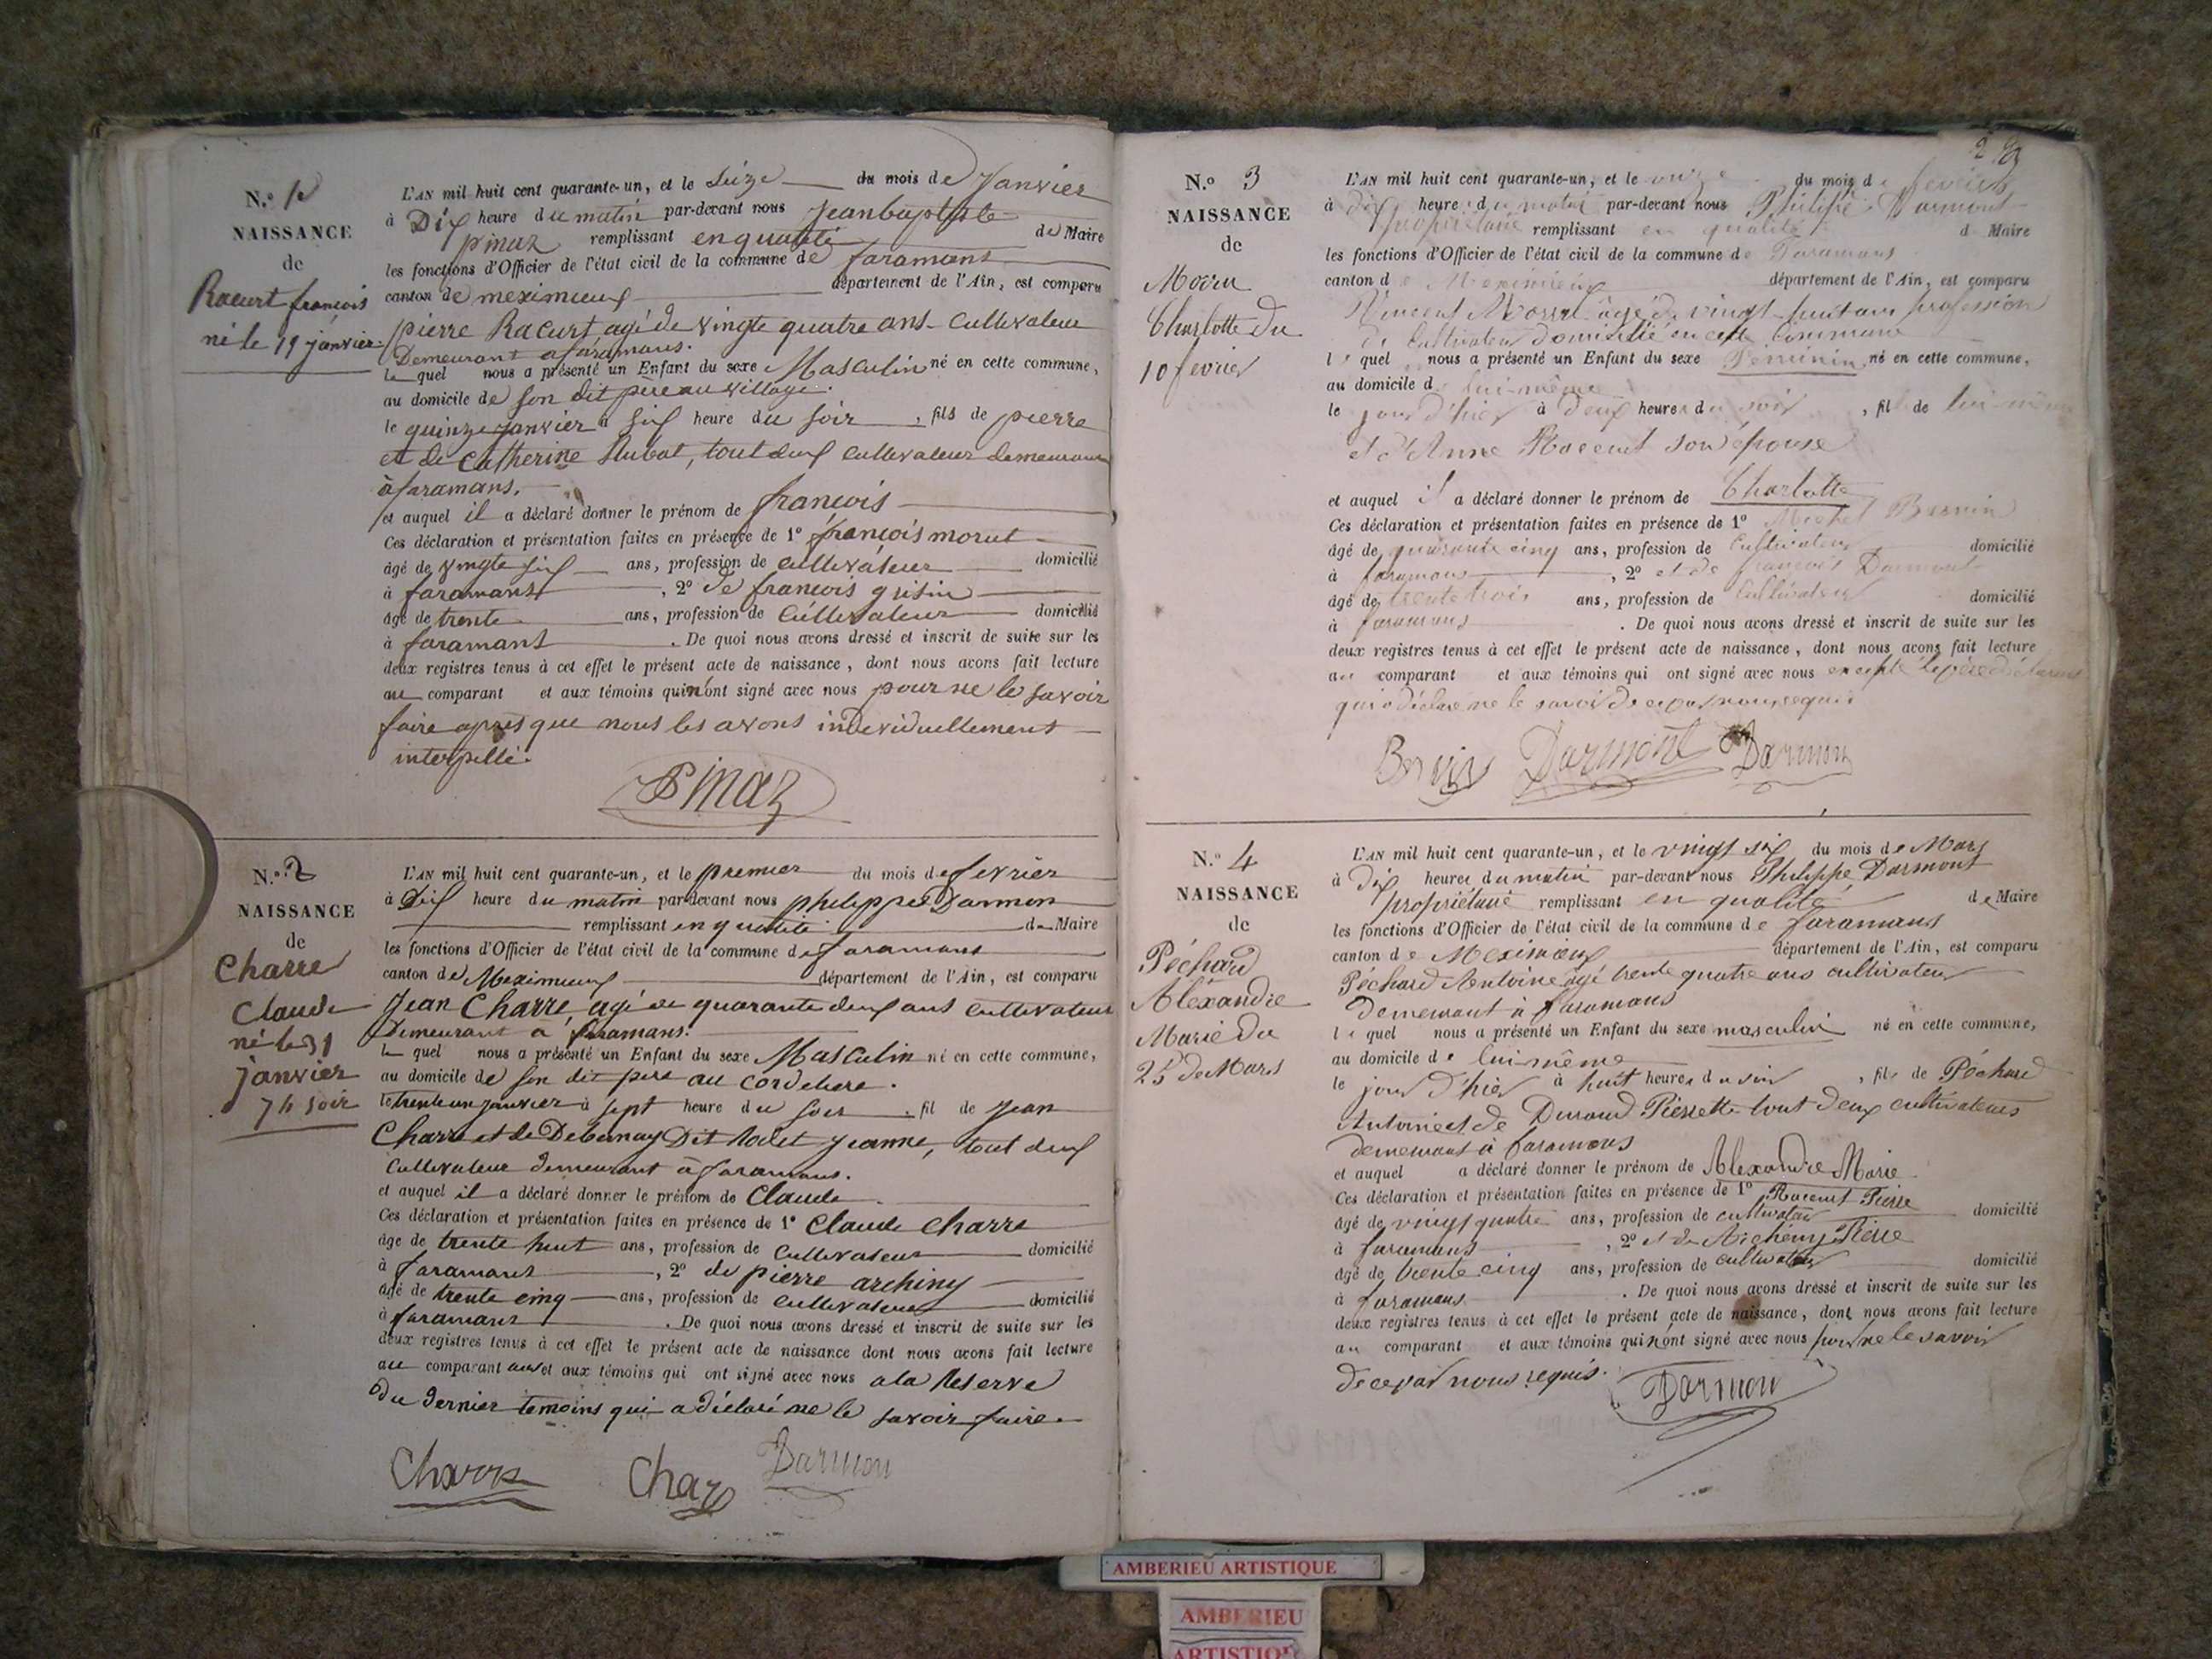 N.° 1
NAISSANCE
de
Racurt françois
né le 19 janvier
L'AN mil huit cent quarante-un, et le Seize du mois de Janvier
à Dix heure du matin par-devant nous Jean baptiste
pinaz remplissant en qualité de Maire
les fonctions d'Officier de l'état civil de la commune de faramans
canton de meximieux département de l'Ain, est comparu
pierre Racurt agé de vingte quatre ans cultivateur
Demeurant a faramans.
le quel nous a présenté un Enfant du sexe Masculin né en cette commune,
au domicile de son dit père au village.
le quinze janvier à six heure du soir, fils de pierre
et de Catherine, tout deux cultivateur demeurant
à faramans.
et auquel il a déclaré donner le prénom de françois
Ces déclaration et présentation faites en présence de 1° françois morut
âgé de vingte six ans, profession de cultivateur domicilié
à faramans, 2° de françois guisin
âgé de trente ans, profession de cultivateur domicilié
à faramans. De quoi nous avons dressé et inscrit de suite sur les
deux registres tenus à cet effet le présent acte de naissance, dont nous avons fait lecture
au comparant et aux témoins qui n'ont signé avec nous pour ne le savoir
faire apres que nous les avons individuellement
interpellé.
Pinaz
N.° 2
NAISSANCE
de
Charre
Claude
né le 31
janvier
7 h soir
L'AN mil huit cent quarante-un, et le premier du mois de fevrier
à Dix heure du matin par-devant nous philippe Darmon
remplissant en qualité de Maire
les fonctions d'Officier de l'état civil de la commune de faramans
canton de Meximieux département de l'Ain, est comparu
Jean Charre agé de quarante deux ans cultivateur
Demeurant a faramans.
le quel nous a présenté un Enfant du sexe Masculin né en cette commune,
au domicile de son dit pere au cordeliere.
le trente un janvier à sept heure du soir, fil de Jean
Charre et de Debernay Dit Jeanne, tout deux
cultivateur demeurant à faramans.
et auquel il a déclaré donner le prénom de Claude
Ces déclaration et présentation faites en présence de 1° Claude Charre
âge de trente huit ans, profession de cultivateur domicilié
à faramans, 2° de pierre archiny
âgé de trente cinq ans, profession de cultivateur domicilié
à faramans. De quoi nous avons dressé et inscrit de suite sur les
deux registres tenus à cet effet le présent acte de naissance dont nous avons fait lecture
au comparant et aux témoins qui ont signé avec nous a la Reserve
du dernier temoins qui a déclaré ne le savoir faire.
Charre Darmon
N.° 3
NAISSANCE
de
Morru
Charlotte du
10 fevrier
L'AN mil huit cent quarante-un, et le onze du mois de fevrier
à dix heures du matin par-devant nous Philipe Darmont
propriétaire remplissant en qualité de Maire
les fonctions d'Officier de l'état civil de la commune de Faramans
canton de Meximieux département de l'Ain, est comparu
Vincent agé de vingt huit ans profession
de Cultivateur domicilié en cette Commune
le quel nous a présenté un Enfant du sexe Féminin né en cette commune,
au domicile de lui-même
le jour d'hier à deux heures du soir, fil de lui-même
et d'Anne Racurt son épouse
et auquel il a déclaré donner le prénom de Charlotte
Ces déclaration et présentation faites en présence de 1° Michel
âgé de quarante cinq ans, profession de Cultivateur domicilié
à faramans, 2° et de francois Darmont
âgé de trente trois ans, profession de Cultivateur domicilié
à faramans. De quoi nous avons dressé et inscrit de suite sur les
deux registres tenus à cet effet le présent acte de naissance, dont nous avons fait lecture
au comparant et aux témoins qui ont signé avec nous excepté le père
qui a déclaré ne le savoir de ce par nous requis
Darmont Darmon
N.° 4
NAISSANCE
de
Péchard
Aléxandre
Marie du
25 de Mars
L'AN mil huit cent quarante-un, et le vingt six du mois de Mars
à dix heures du matin par-devant nous Philippe Darmont
propriétaire remplissant en qualité de Maire
les fonctions d'Officier de l'état civil de la commune de faramans
canton de Meximieux département de l'Ain, est comparu
Péchard Antoine agé trente quatre ans cultivateur
demeurant à faramans
le quel nous a présenté un Enfant du sexe masculin né en cette commune,
au domicile de lui-même
le jour d'hier à huit heures du soir, fils de Péchard
Antoine et de Durand Pierrette tout deux cultivateurs
demeurant à faramans
et auquel a déclaré donner le prénom de Alexandre Marie
Ces déclaration et présentation faites en présence de 1° Racurt Pierre
âgé de vingt quatre ans, profession de cultivateur domicilié
à faramans, 2° et de Archeny Pierre
âgé de trente cinq ans, profession de cultivateur domicilié
à faramans. De quoi nous avons dressé et inscrit de suite sur les
deux registres tenus à cet effet le présent acte de naissance, dont nous avons fait lecture
au comparant et aux témoins qui n'ont signé avec nous pour ne le savoir
de ce par nous requis.
Darmon
AMBERIEU ARTISTIQUE
AMBERIEU
ARTISTIQUE